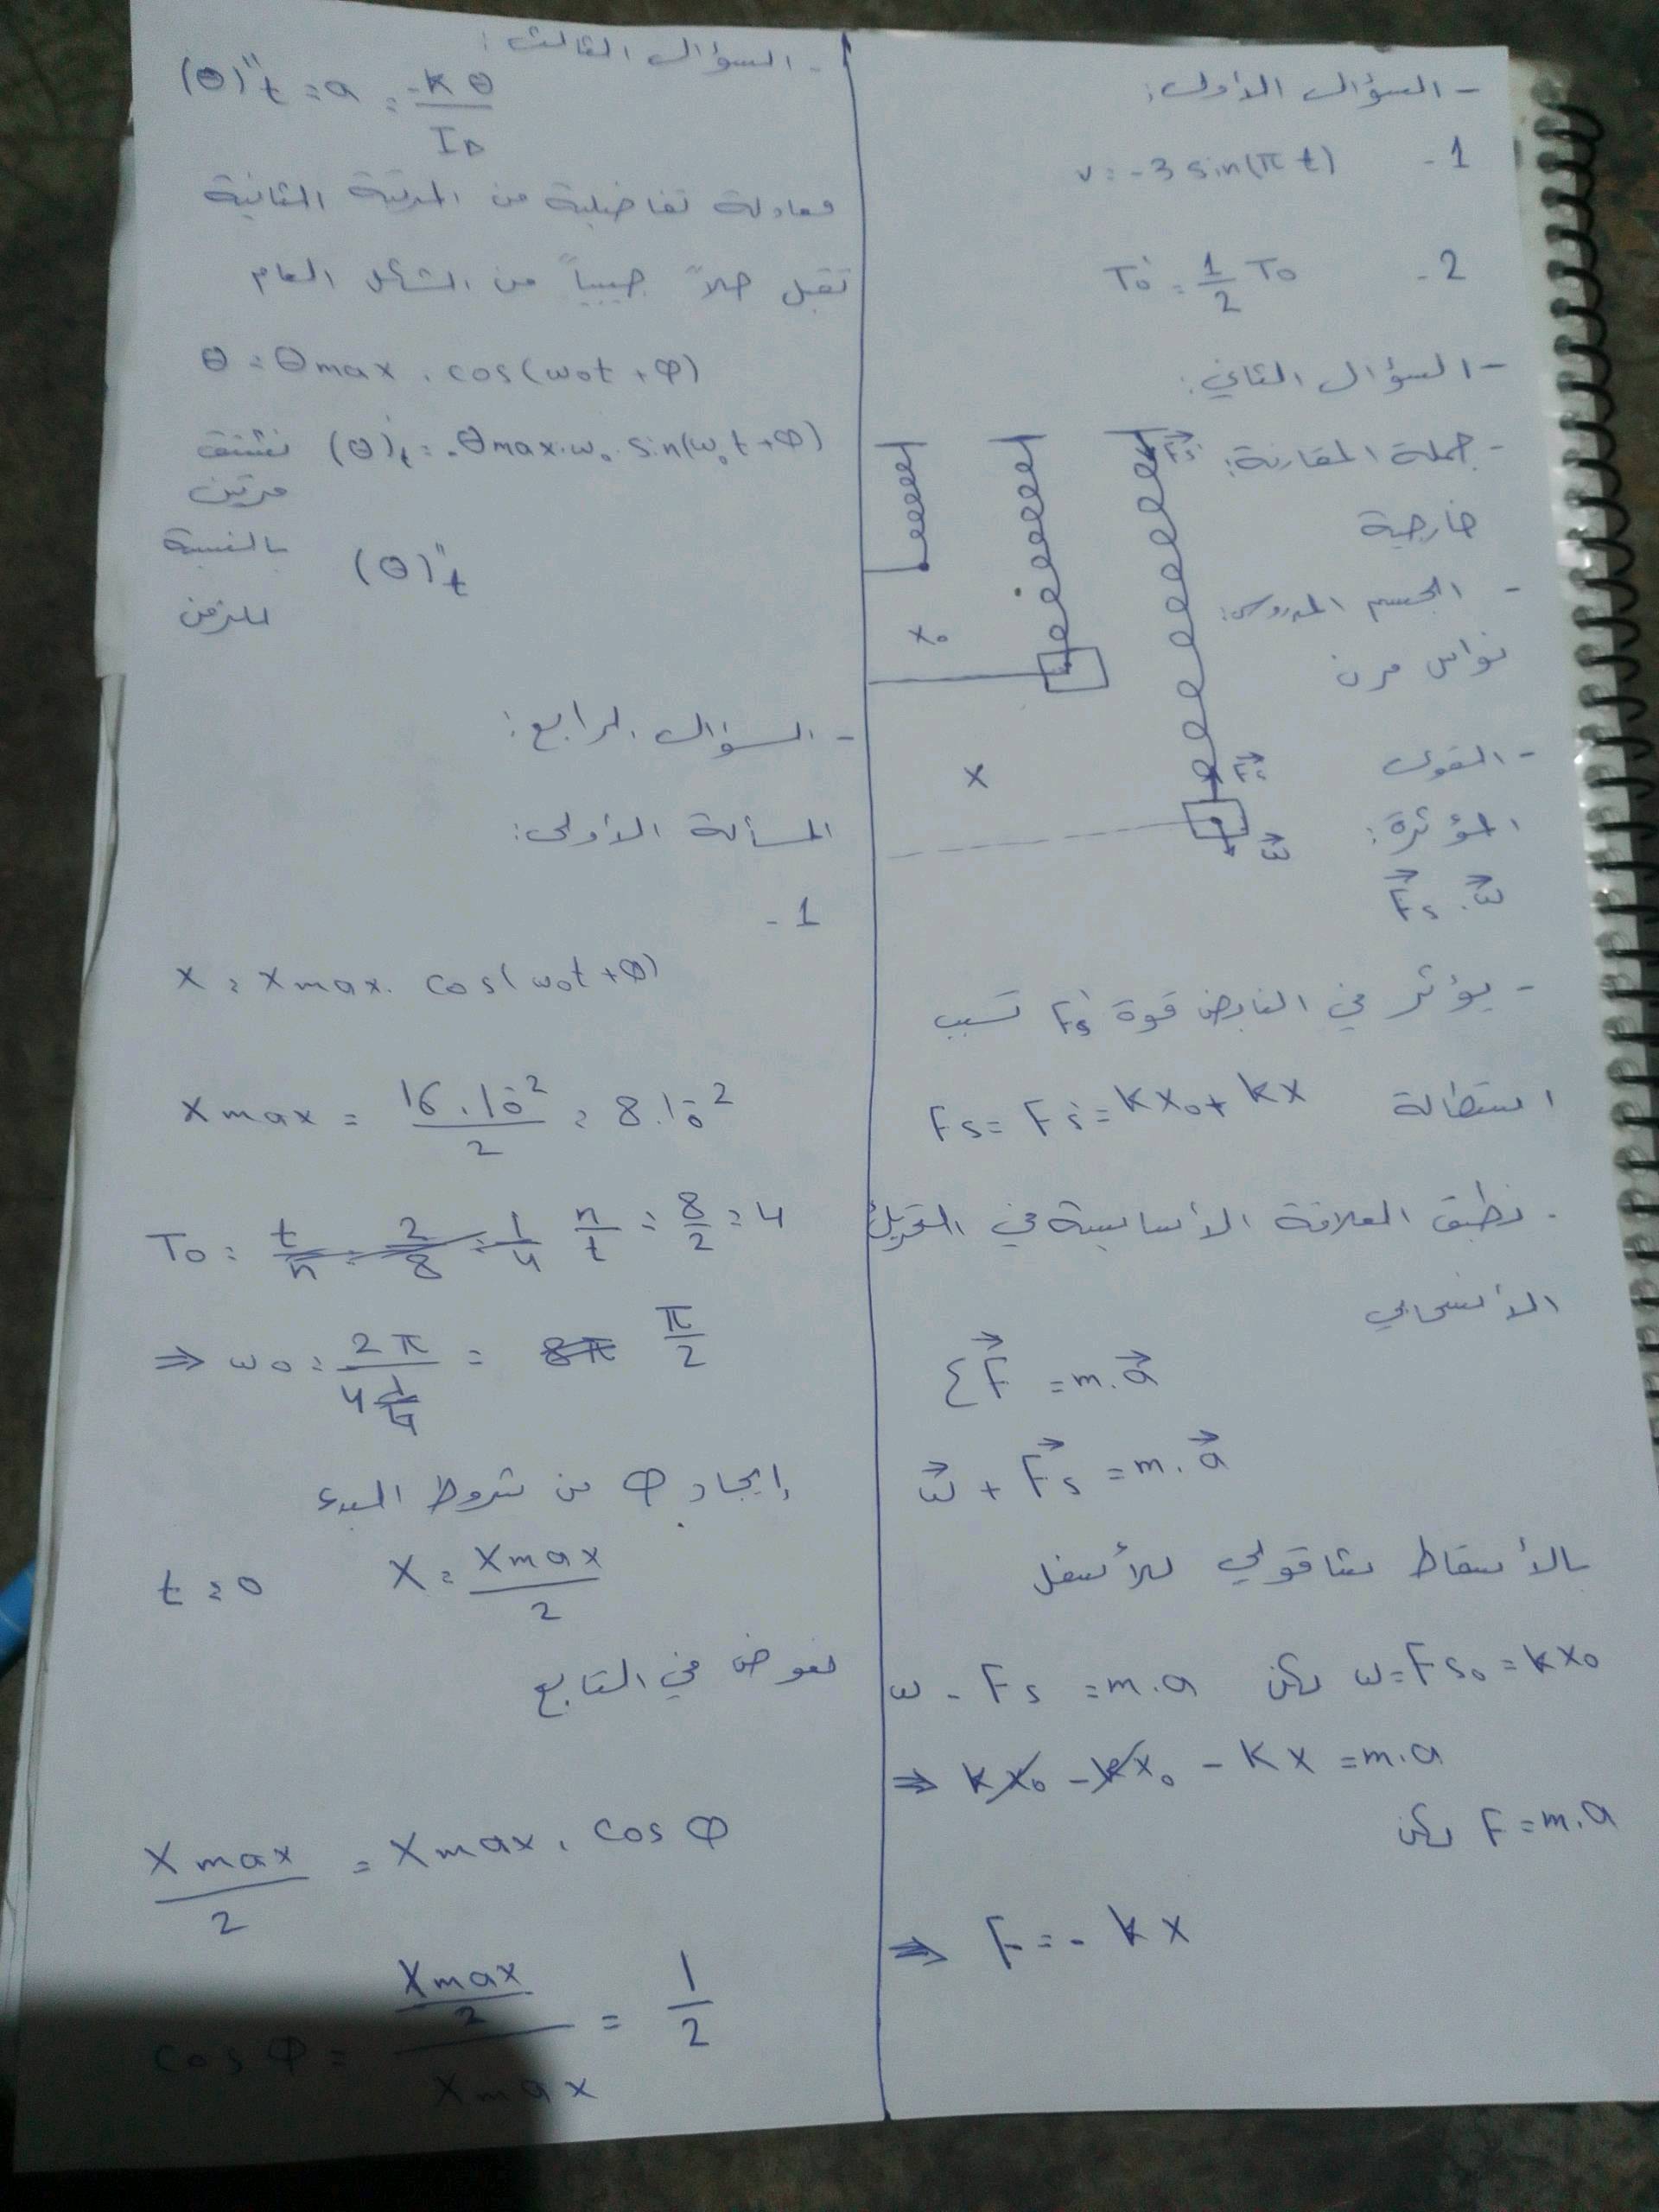 - السؤال الأول:
1 - v = -3 sin(π t)
2 - T₀' = 1/2 T₀
- السؤال الثاني:
- جملة المقارنة:
خارجية
- الجسم المدروس:
نواس مرن
- القوى
المؤثرة:
F⃗s . ω⃗
F⃗s'
x₀
x
F⃗s
ω⃗
- يؤثر في النابض قوة Fs' تسبب
استطالة Fs = Fs' = kx₀ + kx
. نطبق العلاقة الأساسية في التحريك
الأنسحابي
ΣF⃗ = m.a⃗
ω⃗ + F⃗s = m.a⃗
بالأسقاط شاقولي للأسفل
ω - Fs = m.a لكن ω = Fs₀ = kx₀
⇒ kx₀ - kx₀ - kx = m.a
لكن F = m.a
⇒ F = - kx
- السؤال الثالث:
(θ)''t = a = -kθ / I∆
معادلة تفاضلية من المرتبة الثانية
تقبل حلاً جيبياً من الشكل العام
θ = θmax . cos(ω₀t + φ)
نشتق (θ)'t = -θmax.ω₀. sin(ω₀t + φ)
مرتين
بالنسبة (θ)''t
للزمن
- السؤال الرابع:
المسألة الأولى:
1 -
x = xmax. cos(ω₀t + φ)
xmax = 16.10⁻² / 2 = 8.10⁻²
T₀ = t/n = 2/8 = 1/4 n/t = 8/2 = 4
⇒ ω₀ = 2π / 4 1/4 = 8π π/2
إيجاد φ من شروط البدء
t = 0 x = xmax / 2
نعوض في التابع
xmax / 2 = xmax . cos φ
cos φ = xmax/2 / xmax = 1/2